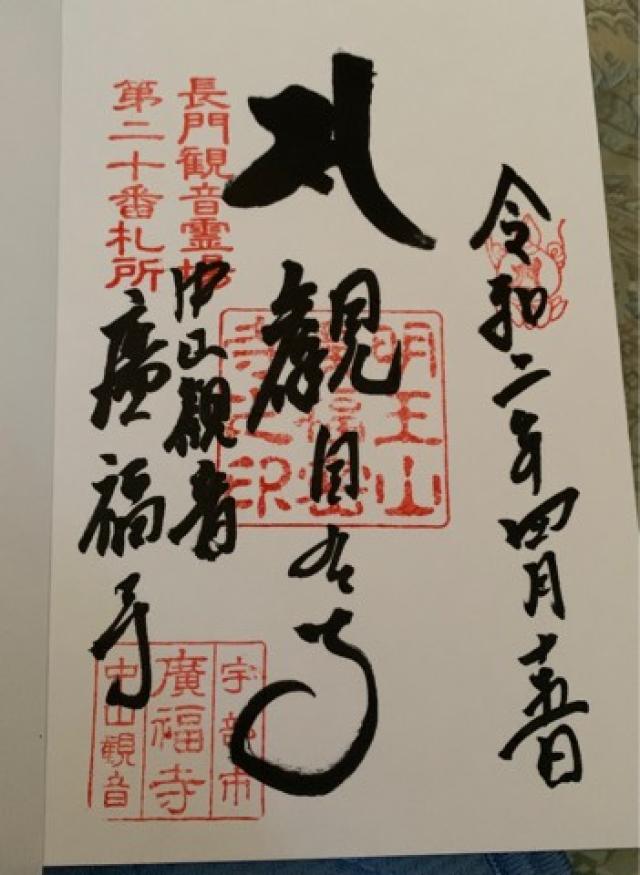 令和二年四月十五日
觀自在
明王山
廣福密
寺之印
長門観音霊場
第二十番札所
中山観音
廣福寺
宇部市
廣福寺
中山観音